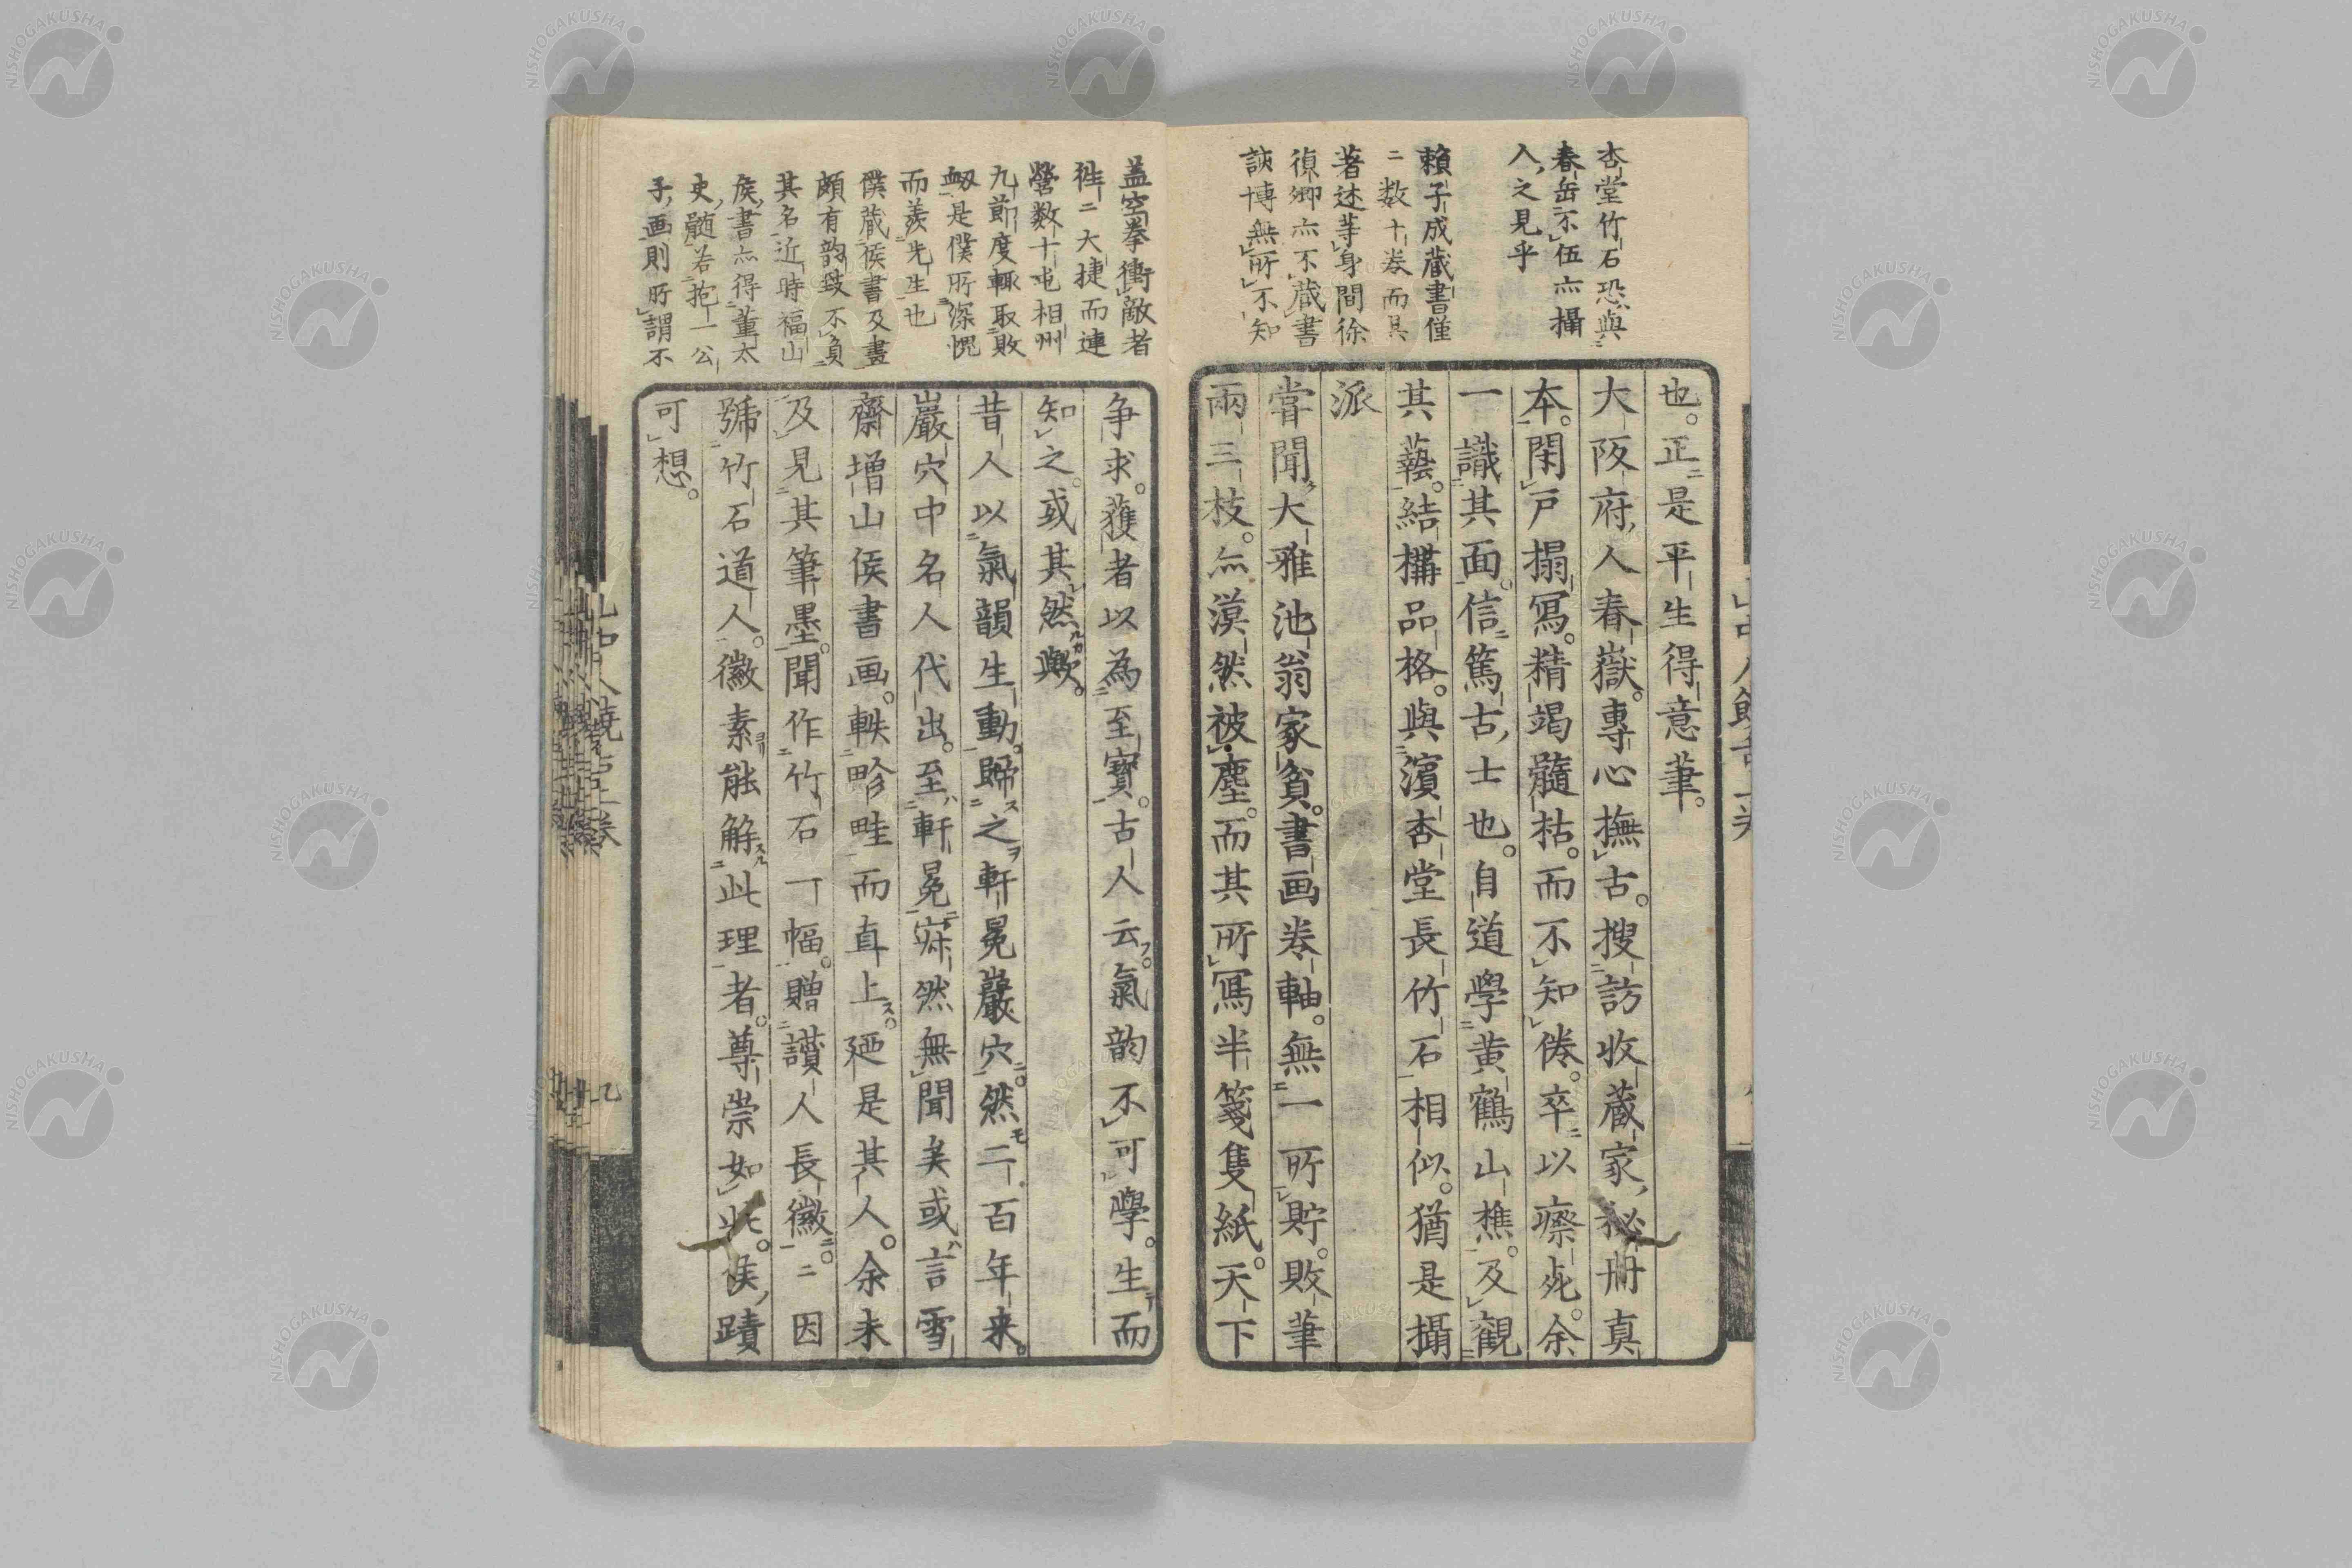 杏堂竹石恐與
春岳不伍亦攝
人之見乎
賴子成藏書僅
二数十巻而其
著述等身間徐
禎卿亦不藏書
該博無所不知
也。正是平生得意筆。
大阪府人春嶽。專心撫古。搜訪收藏家秘冊真
本。閑戸搨寫。精竭髓枯。而不知倦。卒以瘵死。余
一識其面。信篤古士也。自道學黄鶴山樵。及觀
其藝。結構品格。與濱杏堂長竹石相似。猶是攝
派
嘗聞大雅池翁家貧。書画巻軸。無一所貯。敗筆
兩三枝。亦漠然被塵。而其所寫半箋隻紙。天下
蓋空拳衝敵者
徃二大捷而連
營数十屯相州
九節度輙取敗
衂是僕所深愧
而羨先生也
僕藏侯書及畫
頗有韵致不負
其名近時福山
侯書亦得董太
史髄若抱一公
子画則所謂不
争求。獲者以為至寶。古人云。氣韵不可學。生而
知之。或其然歟。
昔人以氣韻生動。歸之軒冕巖穴。然二百年来。
巖穴中名人代出。至軒冕寂然無聞矣或言雪
齋増山侯書画。軼畛畦而直上。廼是其人。余未
及見其筆墨。聞作竹石一幅。贈讃人長徽。二因
號竹石道人。徽素能解此理者。尊崇如此。侯蹟
可想。